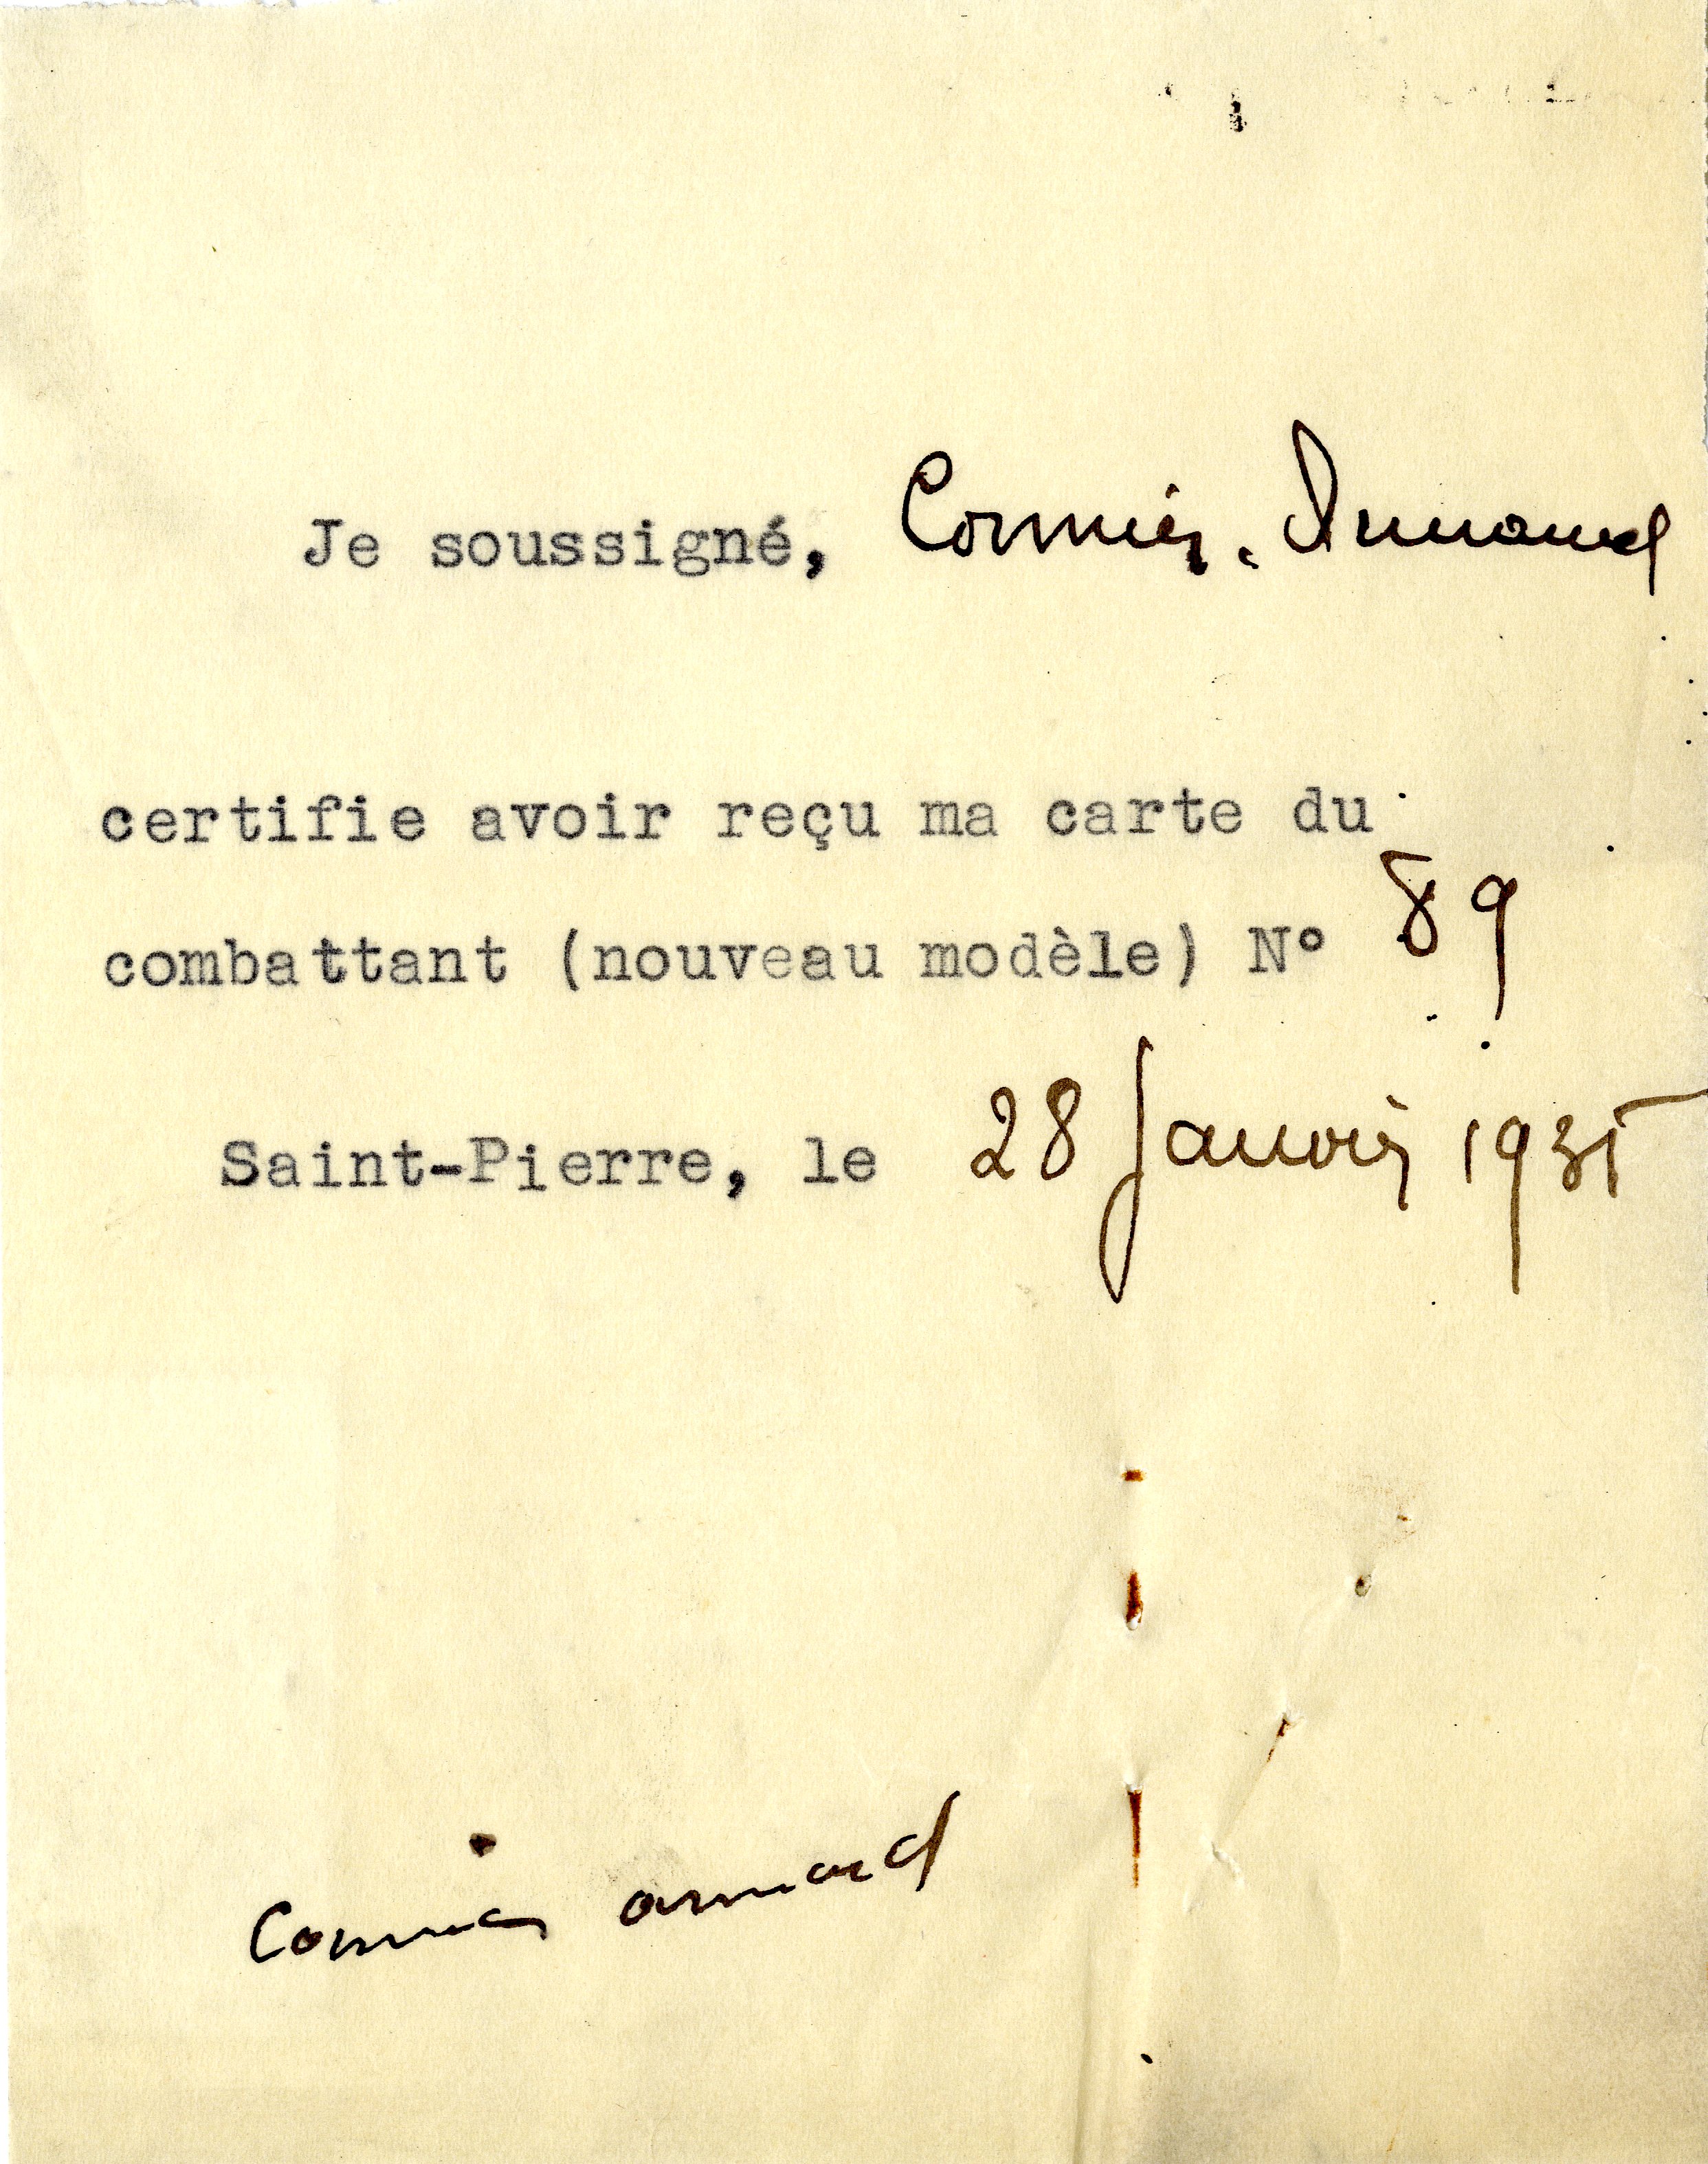 Je soussigné, Cormier. Armand
certifie avoir reçu ma carte du
combattant (nouveau modèle) N° 89
Saint-Pierre, le 28 Janvier 1935
Cormier armand